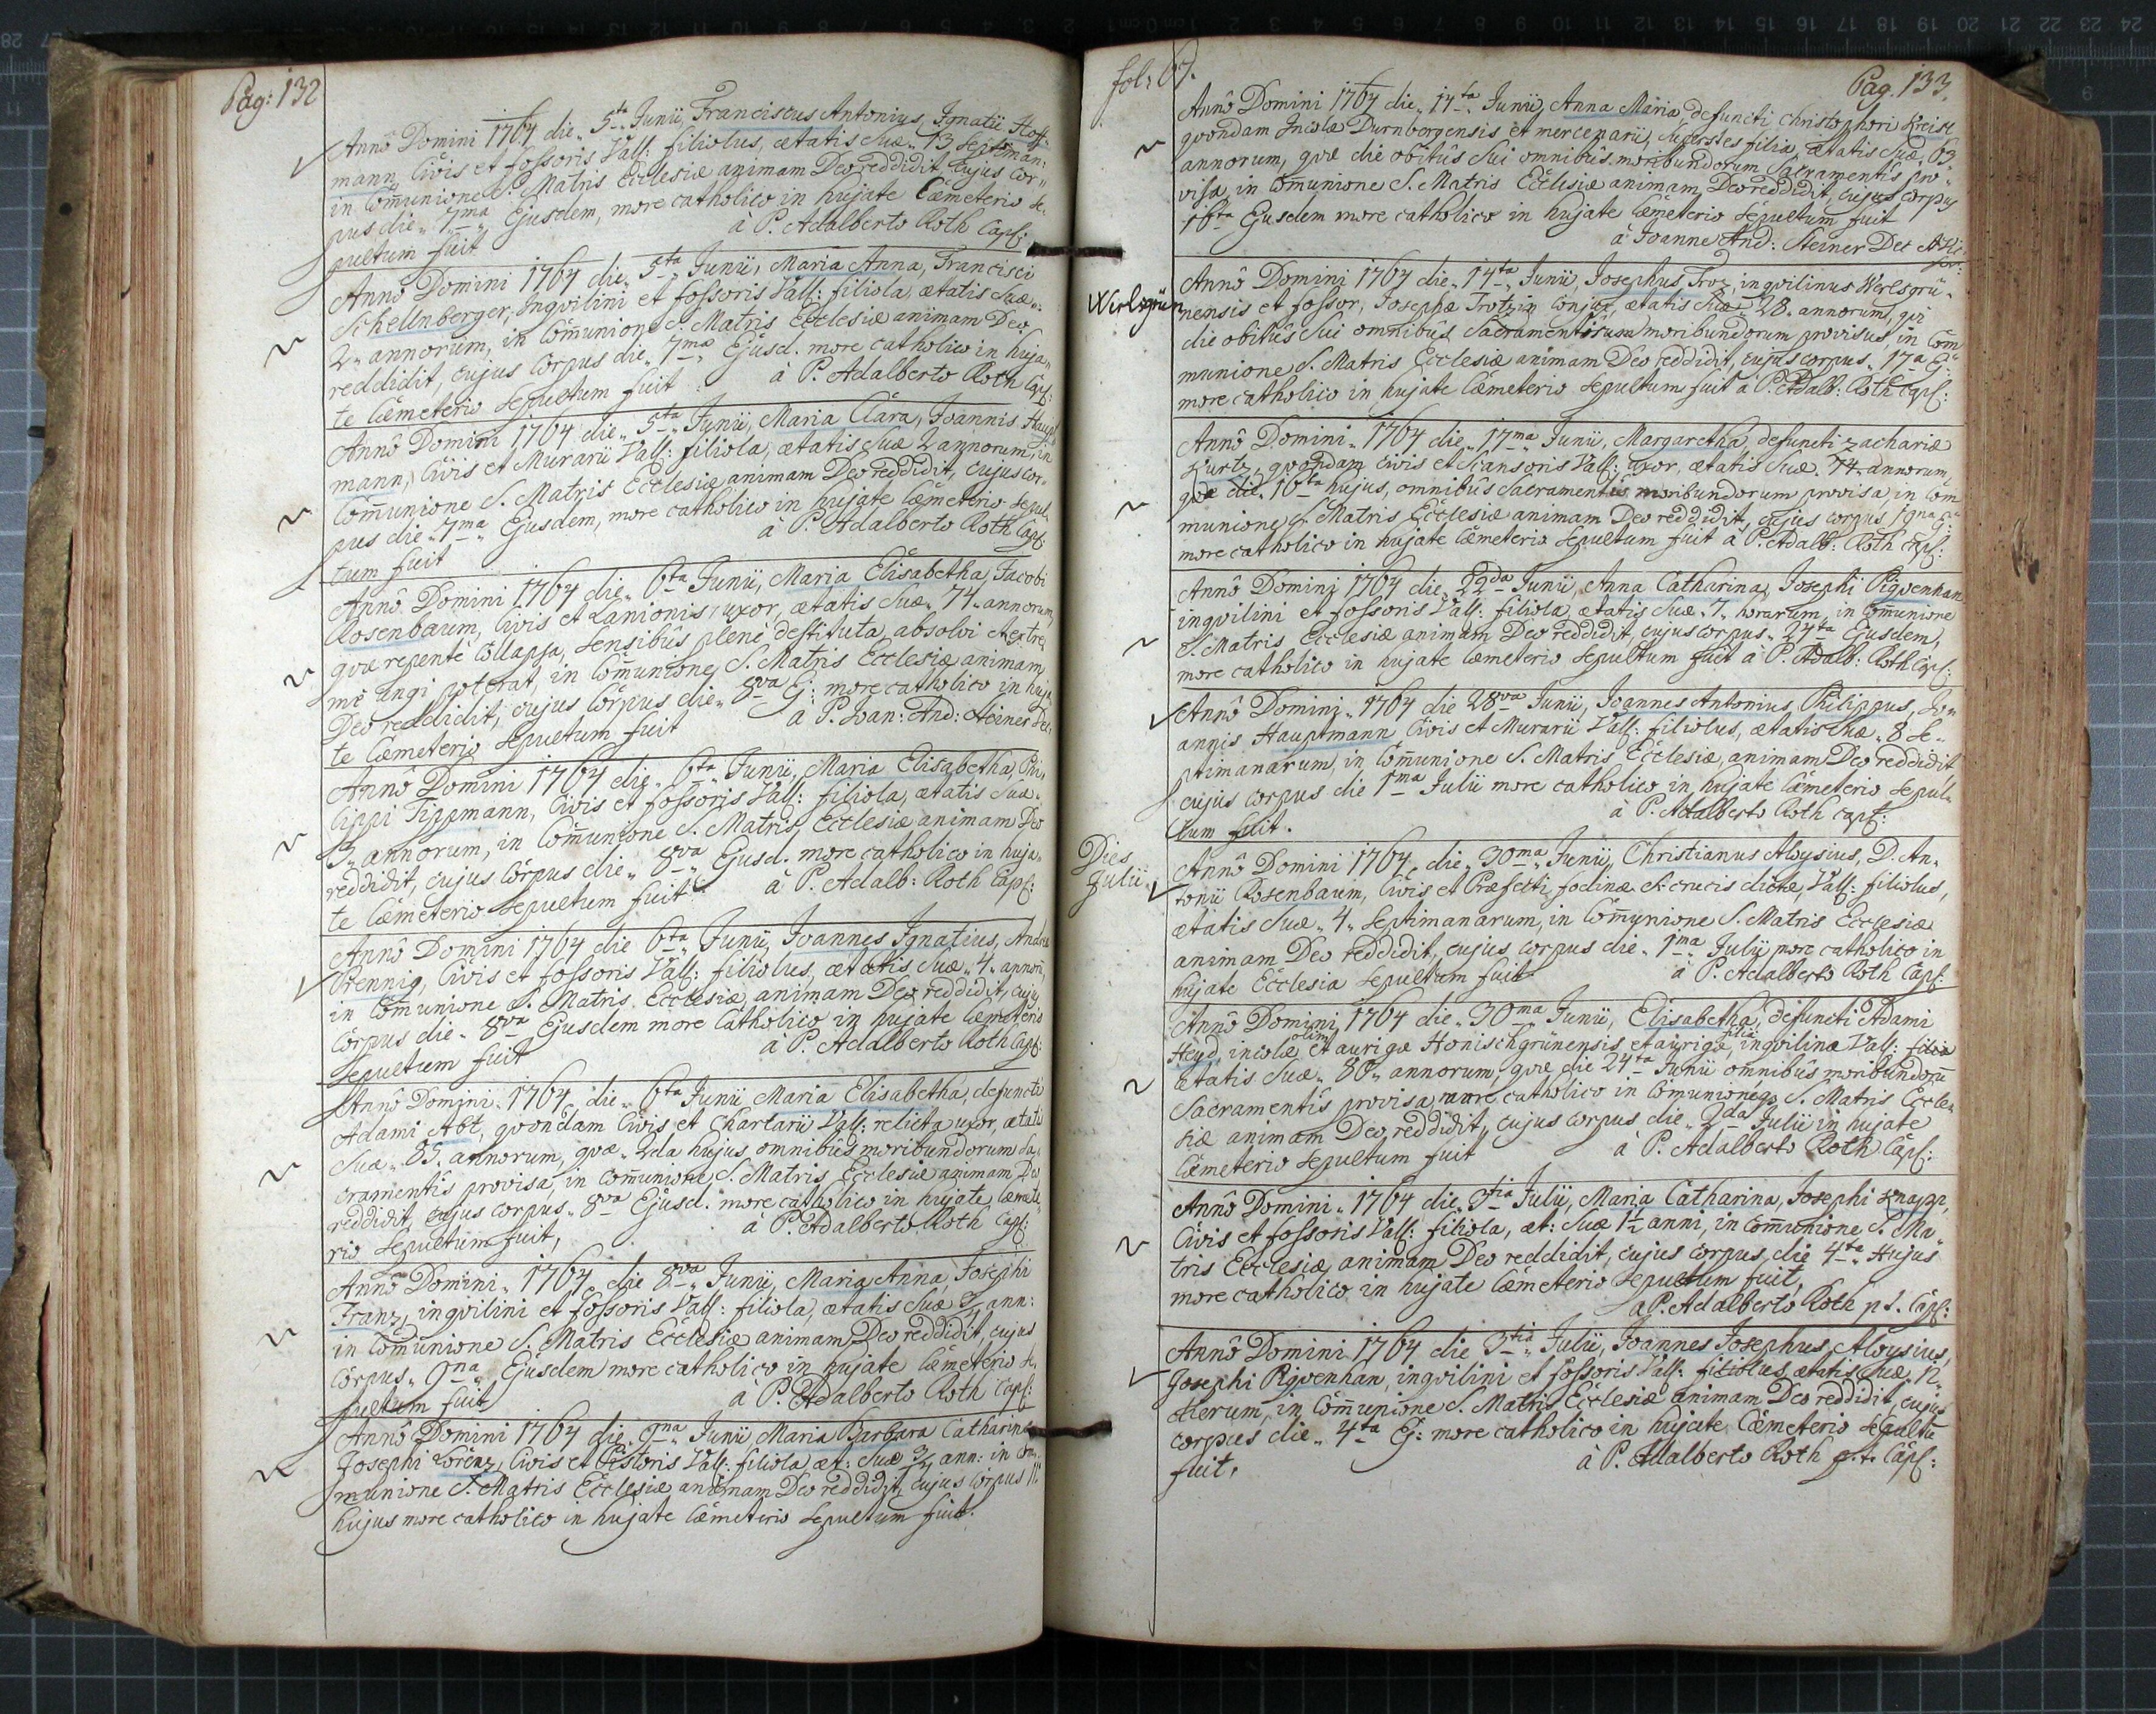 Pag: 132
Annô Domini 1764 die„ 5ta Junii, Franciscus Antonius, Ignatii Hoff
mann, Civis et fossoris Vall: filiolus, ætatis suæ„ 13 septiman:
in Communione S. Matris Ecclesiæ animam Deo reddidit, cujus Cor„
pus die„ 7ma„ Ejusdem, more catholico in hujate Cæmeterio se„
pultum fuit à P. Adalberto Roth Capl:
Annô Domini 1764 die„ 5ta„ Junii, Maria Anna, Francisci
Schellnberger, Inqvilini et fossoris Vall: filiola, ætatis suæ„
2„ annorum, in Communione S. Matris Ecclesiæ animam Deo
reddidit, cujus Corpus die„ 7ma„ Ejusd. more catholico in huja„
te Cæmeterio sepultum fuit à P. Adalberto Roth Capl:
Annô Domini 1764 die„ 5ta„ Junii, Maria Clara, Joannis Haupt
mann, Civis et Murarii Vall: filiola, ætatis suæ 2 annorum, in
Communione S. Matris Ecclesiæ animam Deo reddidit, cujus cor„
pus die„ 7ma„ Ejusdem, more catholico in hujate Cæmeterio sepul„
tum fuit à P. Adalberto Roth Capl:
Annô Domini 1764 die„ 6ta Junii, Maria Elisabetha, Jacobi
Rosenbaum, Civis et Lanionis, uxor, ætatis suæ„ 74„ annorum,
qvæ repentè collapsa, sensibus plenè destituta, absolvi et extre„
mè ungi poterat, in Communione S. Matris Ecclesiæ animam
Deo reddidit, cujus Corpus die„ 8va Ej: more catholico in huja„
te Cæmeterio sepultum fuit à P. Joan: And: Steiner Dec:
Annô Domini 1764 die„ 6ta„ Junii, Maria Elisabetha, Phi„
lippi Tippmann, Civis et fossoris Vall: filiola, ætatis suæ„
3„ annorum, in Communione S. Matris Ecclesiæ animam Deo
reddidit, cujus Corpus die„ 8va„ Ejusd. more catholico in huja„
te Cæmeterio sepultum fuit à P. Adalb: Roth Capl:
Annô Domini 1764 die 6ta„ Junii, Joannes Ignatius, Andreæ
Prennig, Civis et fossoris Vall: filiolus, ætatis suæ„ 4„ annorū,
in Communione S. Matris Ecclesiæ animam Deo reddidit, cujus
Corpus die„ 8va Ejusdem more Catholico in hujate Cæmeterio
sepultum fuit à P. Adalberto Roth Capl:
Annô Domini 1764 die„ 6ta Junii Maria Elisabetha, defuncti
Adami Abt, qvondam Civis et Chartarii Vall: relicta uxor, ætatis
suæ„ 85„ annorum, qvæ„ 2da hujus omnibus moribundorum Sa„
cramentis provisa, in communione S. Matris Ecclesiæ animam Deo
reddidit, cujus corpus„ 8va Ejusd. more catholico in hujate Cæmete„
rio sepultum fuit, à P. Adalberto Roth Capl:
Annô Domini„ 1764 die 8va„ Junii, Maria Anna, Josephi
Franz, inqvilini et fossoris Vall: filiola, ætatis suæ 3/4 ann:
in Communione S. Matris Ecclesiæ animam Deo reddidit, cujus
Corpus„ 9na„ Ejusdem more catholico in hujate Cæmeterio se„
pultum fuit à P. Adalberto Roth Capl:
Annô Domini 1764 die 9na„ Junii, Maria Barbara Catharina
Josephi Lorenz, Civis et Pistoris Vall: filiola æt: suæ 3/4 ann: in Com„
munione S. Matris Ecclesiæ animam Deo reddidit, cujus corpus 11
hujus more catholico in hujate Cæmeterio sepultum fuit.
fol: 67.
Pag. 133.
Annô Domini 1764 die„ 14ta Junii, Anna Maria, defuncti Christophori Kreisl
qvondam Incolæ Durnbergensis et mercenarii, superstes filia, ætatis suæ, 63
annorum, qvæ die obitûs sui omnibus moribundorum Sacramentis pro„
visa, in Communione S. Matris Ecclesiæ animam Deo reddidit, cujus corpus
16ta Ejusdem more catholico in hujate Cæmeterio sepultum fuit
à Joanne And: Steiner Dec
Annô Domini 1764 die„ 14ta„ Junii, Josephus Troz, inqvilinus Werlsgrü„
Werlsgrün
nensis et fossor, Josephæ Trotzin Conjux, ætatis suæ„ 28„ annorum, qvi
die obitûs sui omnibus Sacramentis moribundorum provisus, in Com„
munione S. Matris Ecclesiæ animam Deo reddidit, cujus corpus„ 17a Ej:
more catholico in hujate Cæmeterio sepultum fuit à P. Adalb: Roth Capl:
Annô Domini„ 1764 die„ 17ma Junii, Margaretha, defuncti Zachariæ
Kurtz, qvondam civis et Scansoris Vall: uxor, ætatis suæ. 74„ annorum,
qvæ die„ 16ta hujus, omnibus Sacramentis moribundorum provisa, in Com„
munione S. Matris Ecclesiæ animam Deo reddidit, cujus corpus 19na Ej:
more catholico in hujate Cæmeterio sepultum fuit à P. Adalb: Roth Capl:
Annô Domini 1764 die„ 22da Junii, Anna Catharina, Josephi Piqvenhan
inqvilini et fossoris Vall: filiola, ætatis suæ„ 7„ horarum, in Communione
S. Matris Ecclesiæ animam Deo reddidit, cujus corpus„ 24ta Ejusdem,
more catholico in hujate Cæmeterio sepultum fuit à P. Adalb: Roth Capl:
Annô Domini„ 1764 die 28va Junii, Joannes Antonius Philippus, Jo„
annis Hauptmann Civis et Murarii Vall: filiolus, ætatis suæ„ 8 se„
ptimanarum, in Communione S. Matris Ecclesiæ, animam Deo reddidit,
cujus corpus die 1ma Julii more catholico in hujate Cæmeterio sepul„
tum fuit. à P. Adalberto Roth Capl:
Dies
Julii
Annô Domini 1764 die„ 30ma„ Junii, Christianus Aloysius, D. An„
tonii Rosenbaum, Civis et Præfecti fodinæ S: crucis dictæ, Vall: filiolus,
ætatis suæ„ 4„ septimanarum, in Communione S. Matris Ecclesiæ
animam Deo reddidit, cujus corpus die„ 1ma„ Julii more catholico in
hujate Ecclesia sepultum fuit à P. Adalberto Roth Capl:
Annô Domini 1764 die„ 30ma Junii, Elisabetha, defuncti Adami
Heyd, incolæ olim et aurigæ Honischgrünensis, et aurigæ filia, inqvilinæ Vall: filia
ætatis suæ„ 80„ annorum, qvæ die 24ta Junii omnibus moribundorū
Sacramentis provisa, more catholico in Communione S. Matris Eccle„
siæ animam Deo reddidit, cujus corpus die„ 2da Julii in hujate
Cæmeterio sepultum fuit à P. Adalberto Roth Capl:
Annô Domini„ 1764 die„ 3tia Julii, Maria Catharina, Josephi Knapp,
Civis et fossoris Vall: filiola, æt: suæ 1 1/2 anni, in Communione S. Ma„
tris Ecclesiæ, animam Deo reddidit, cujus corpus die 4ta„ Hujus
more catholico in hujate Cæmeterio sepultum fuit,
à P. Adalberto Roth p.t. Capl:
Annô Domini 1764 die 3tia„ Julii, Joannes Josephus Aloysius,
Josephi Piqvenhan, inqvilini et fossoris Vall: filiolus, ætatis suæ, 12„
dierum, in Communione S. Matris Ecclesiæ animam Deo reddidit, cujus
corpus die„ 4ta Ej: more catholico in hujate Cæmeterio sepultū
fuit, à P. Adalberto Roth p.t. Capl: